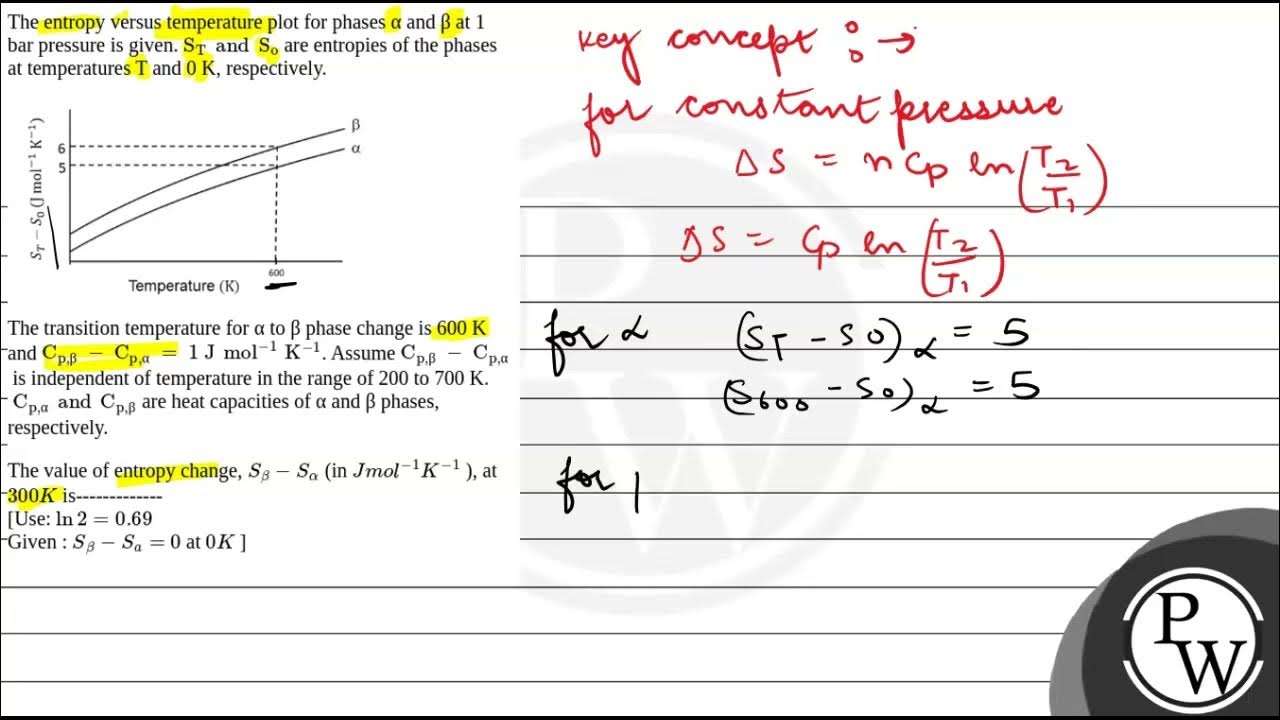 The entropy versus temperature plot for phases α and β at 1
bar pressure is given. S_T and S_0 are entropies of the phases
at temperatures T and 0 K, respectively.
S_T − S_0 (J mol⁻¹ K⁻¹)
6
5
β
α
600
Temperature (K)
The transition temperature for α to β phase change is 600 K
and C_p,β − C_p,α = 1 J mol⁻¹ K⁻¹. Assume C_p,β − C_p,α
is independent of temperature in the range of 200 to 700 K.
C_p,α and C_p,β are heat capacities of α and β phases,
respectively.
The value of entropy change, S_β − S_α (in Jmol⁻¹K⁻¹ ), at
300K is-------------
[Use: ln 2 = 0.69
Given : S_β − S_a = 0 at 0K ]
key concept : →
for constant pressure
ΔS = n Cp ln (T_2/T_1)
ΔS = Cp ln (T_2/T_1)
for α (S_T − S0)_α = 5
(S_600 − S0)_α = 5
for
P
W